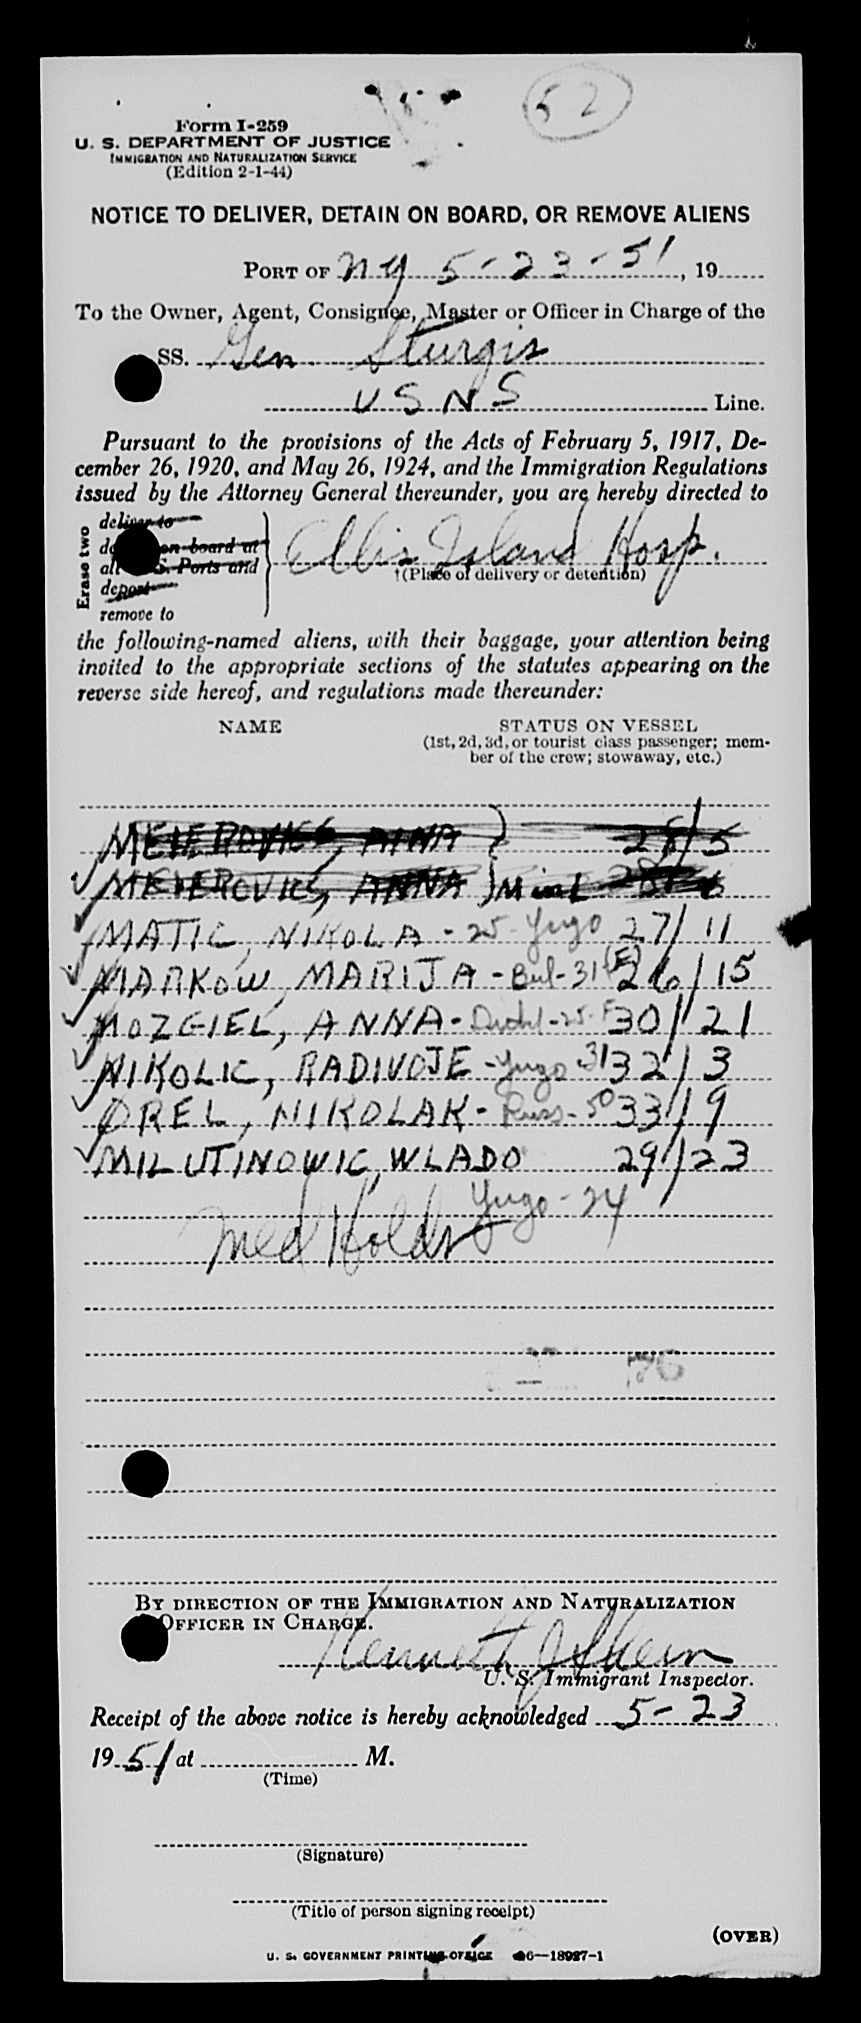 52
Form I-259
U. S. DEPARTMENT OF JUSTICE
IMMIGRATION AND NATURALIZATION SERVICE
(Edition 2-1-44)
NOTICE TO DELIVER, DETAIN ON BOARD, OR REMOVE ALIENS
PORT OF NY 5-23-51, 19
To the Owner, Agent, Consignee, Master or Officer in Charge of the
SS. Gen Sturgis
USNS Line.
Pursuant to the provisions of the Acts of February 5, 1917, De-
cember 26, 1920, and May 26, 1924, and the Immigration Regulations
issued by the Attorney General thereunder, you are hereby directed to
Erase two
deliver to
on board at
Ports and
deport
remove to
Ellis Island Hosp.
†(Place of delivery or detention)
the following-named aliens, with their baggage, your attention being
invited to the appropriate sections of the statutes appearing on the
reverse side hereof, and regulations made thereunder:
NAME STATUS ON VESSEL
(1st, 2d, 3d, or tourist class passenger; mem-
ber of the crew; stowaway, etc.)
MEIEROVICS, AINA 28/5
MEIEROVICS, ANNA
MATIC, NIKOLA - 25 - Yugo 27/11
MARKOW, MARIJA - Bul - 31 (F) 26/15
MOZGIEL, ANNA - 25 - F 30/21
NIKOLIC, RADIVOJE - Yugo 31 32/3
OREL, NIKOLAK - Russ - 50 33/9
MILUTINOWIC, WLADO 29/23
Yugo - 24
Med Holds
BY DIRECTION OF THE IMMIGRATION AND NATURALIZATION
OFFICER IN CHARGE.
Kenneth J
U. S. Immigrant Inspector.
Receipt of the above notice is hereby acknowledged 5-23
1951 at M.
(Time)
(Signature)
(Title of person signing receipt)
(OVER)
U. S. GOVERNMENT PRINTING OFFICE 16—18927-1